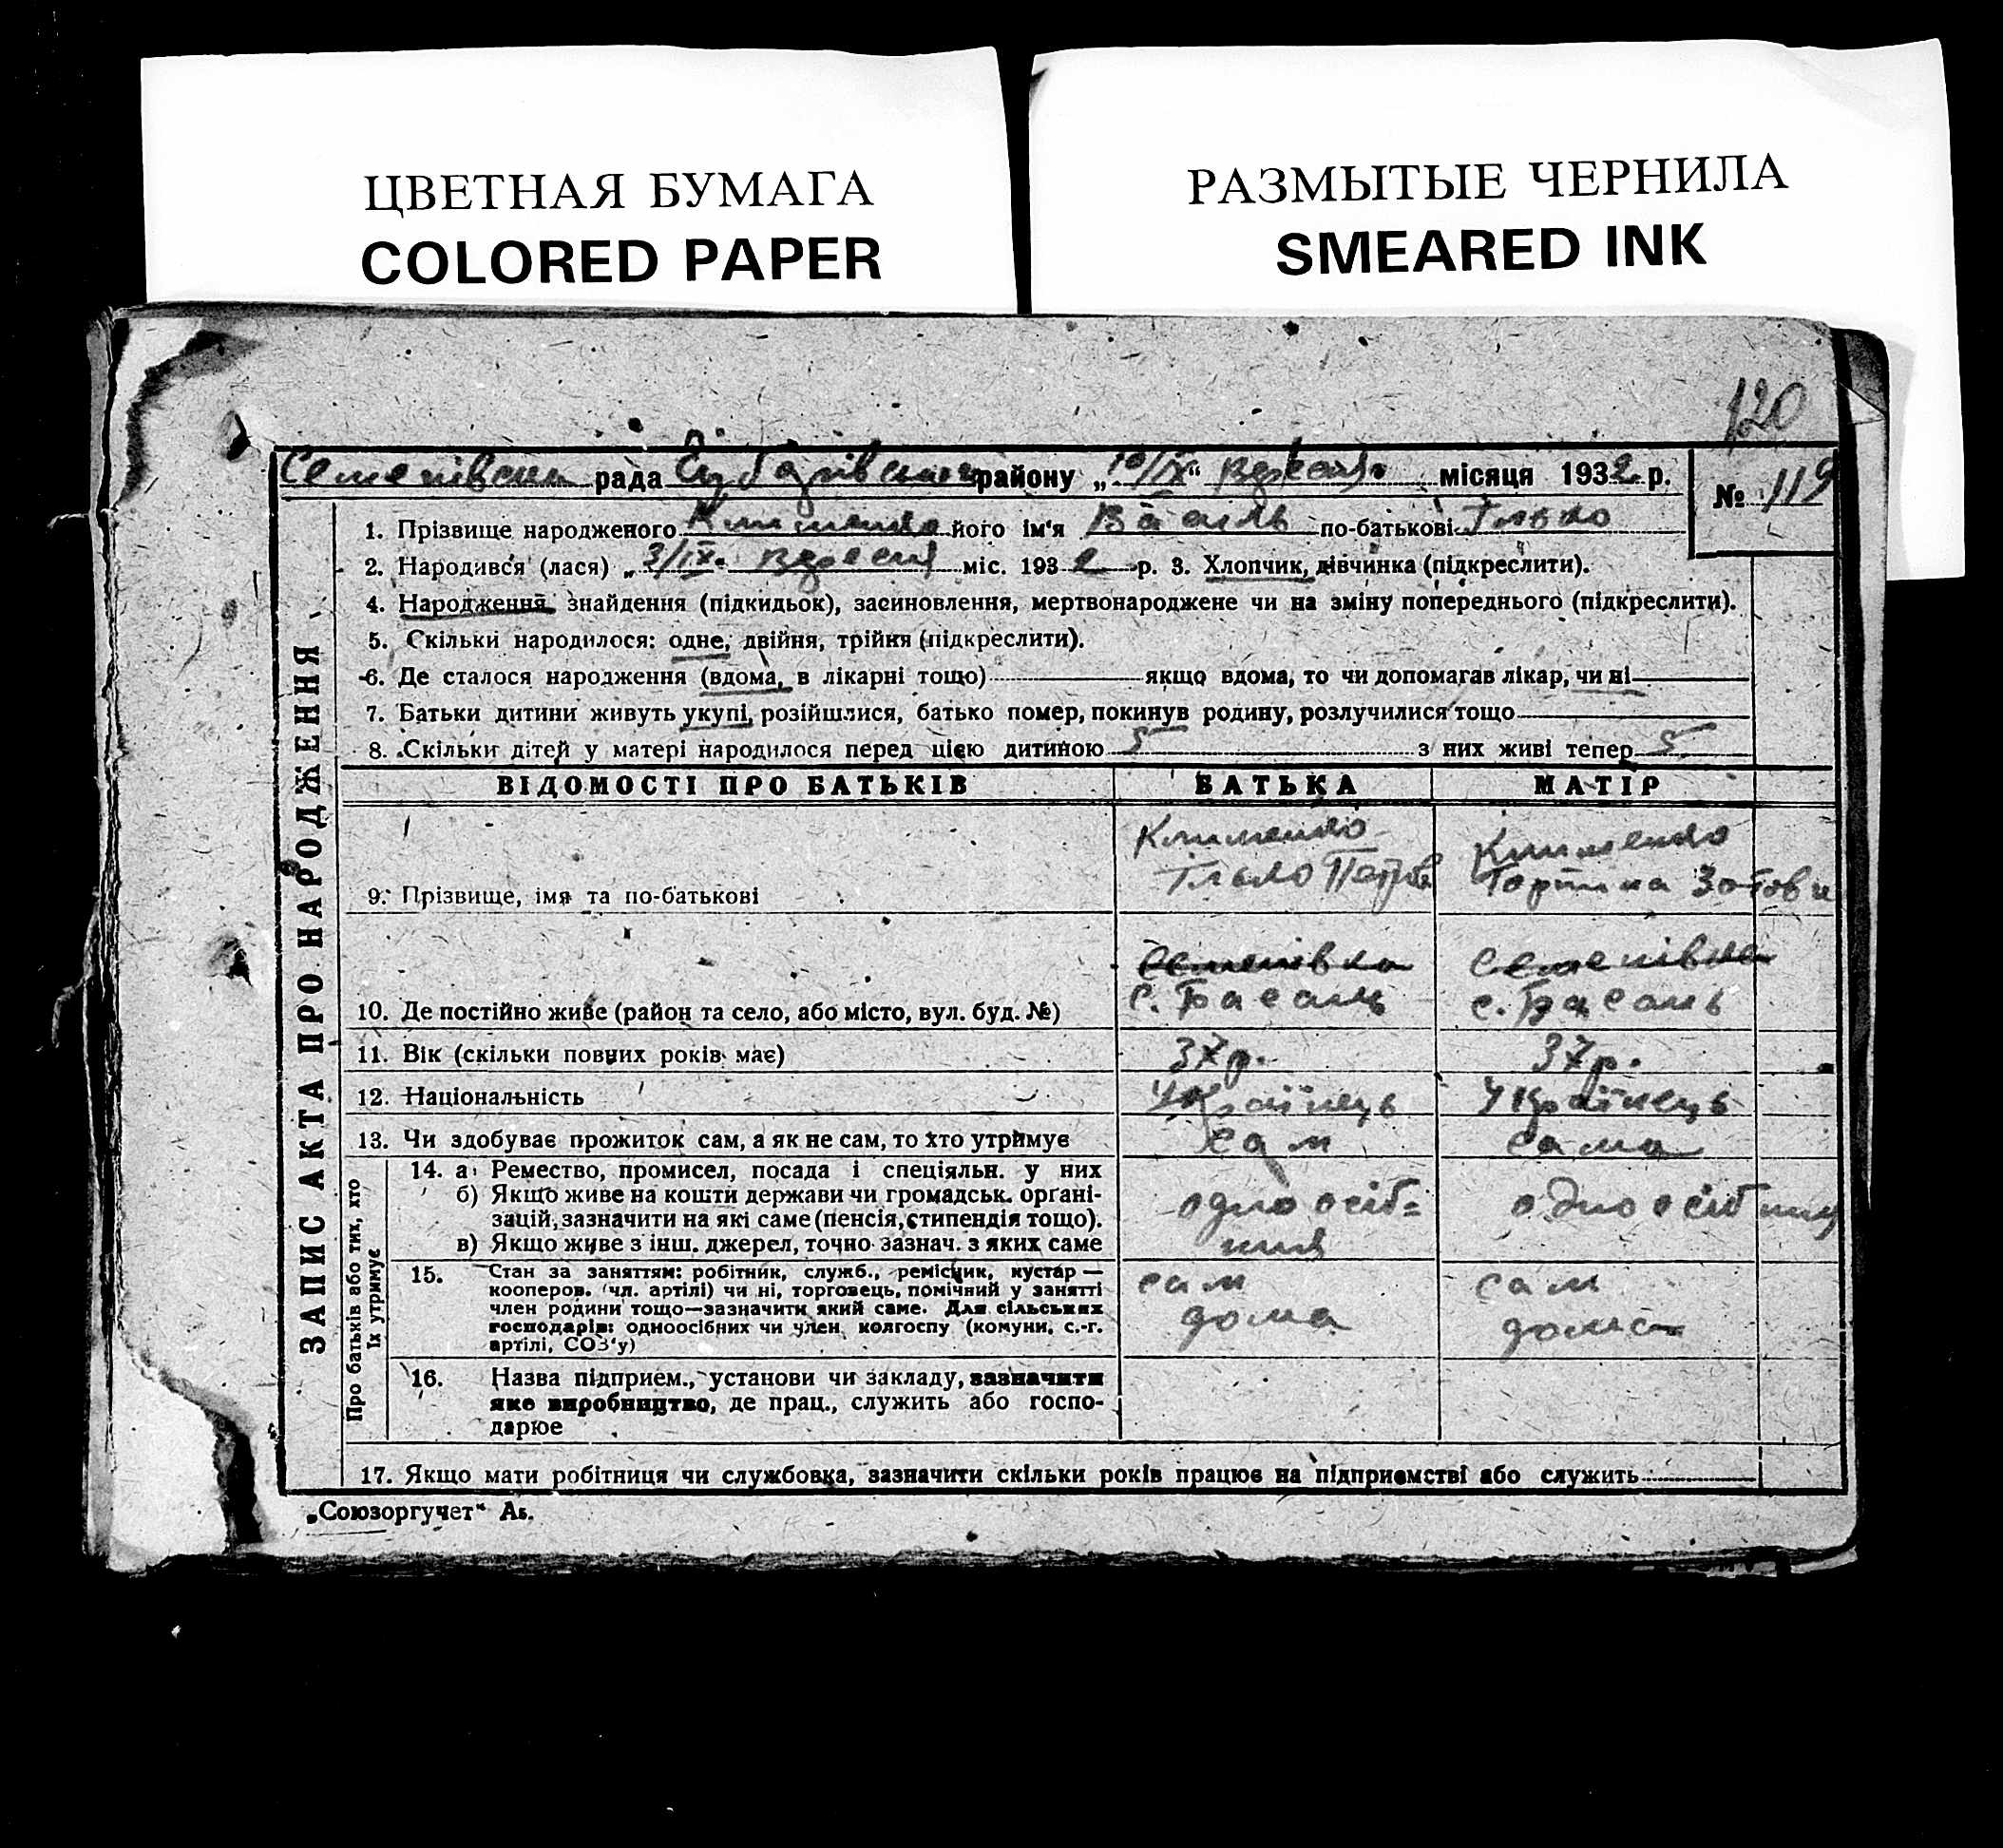 ЦВЕТНАЯ БУМАГА
COLORED PAPER
РАЗМЫТЫЕ ЧЕРНИЛА
SMEARED INK
120
рада району „10/ІХ“ Вересня місяця 1932 р.
№ 119
ЗАПИС АКТА ПРО НАРОДЖЕННЯ
1. Прізвище народженого Клименко його ім'я Василь по-батькові
2. Народився (лася) „3/ІХ. Вересня міс. 1932 р. 3. Хлопчик, дівчинка (підкреслити).
4. Народження, знайдення (підкидьок), засиновлення, мертвонароджене чи на зміну попереднього (підкреслити).
5. Скільки народилося: одне, двійня, трійня (підкреслити).
6. Де сталося народження (вдома, в лікарні тощо) якщо вдома, то чи допомагав лікар, чи ні
7. Батьки дитини живуть укупі, розійшлися, батько помер, покинув родину, розлучилися тощо
8. Скільки дітей у матері народилося перед цією дитиною 5 з них живі тепер 5
ВІДОМОСТІ ПРО БАТЬКІВ БАТЬКА МАТІР
9. Прізвище, імя та по-батькові
Клименко
Клименко
10. Де постійно живе (район та село, або місто, вул. буд. №)
Семенівка
с. Басань
Семенівка
с. Басань
11. Вік (скільки повних років має) 37р. 37р.
12. Національність Українець Українець
13. Чи здобуває прожиток сам, а як не сам, то хто утримує сам сама
Про батьків або тих, хто
їх утримує
14. а Ремество, промисел, посада і спеціяльн. у них
б) Якщо живе на кошти держави чи громадськ. орґані-
зацій, зазначити на які саме (пенсія, стипендія тощо).
в) Якщо живе з інш. джерел, точно зазнач. з яких саме
одноосіб=
15. Стан за заняттям: робітник, служб., ремісник, кустар —
кооперов. (чл. артілі) чи ні, торговець, помічний у занятті
член родини тощо—зазначити який саме. Для сільських
господарів: одноосібних чи член колгоспу (комуни, с.-г.
артілі, СОЗ'у)
сам
дома
сам
дома
16. Назва підприєм., установи чи закладу, зазначити
яке виробництво, де прац., служить або госпо-
дарює
17. Якщо мати робітниця чи службовка, зазначити скільки років працює на підприємстві або служить
„Союзоргучет“ Аз.